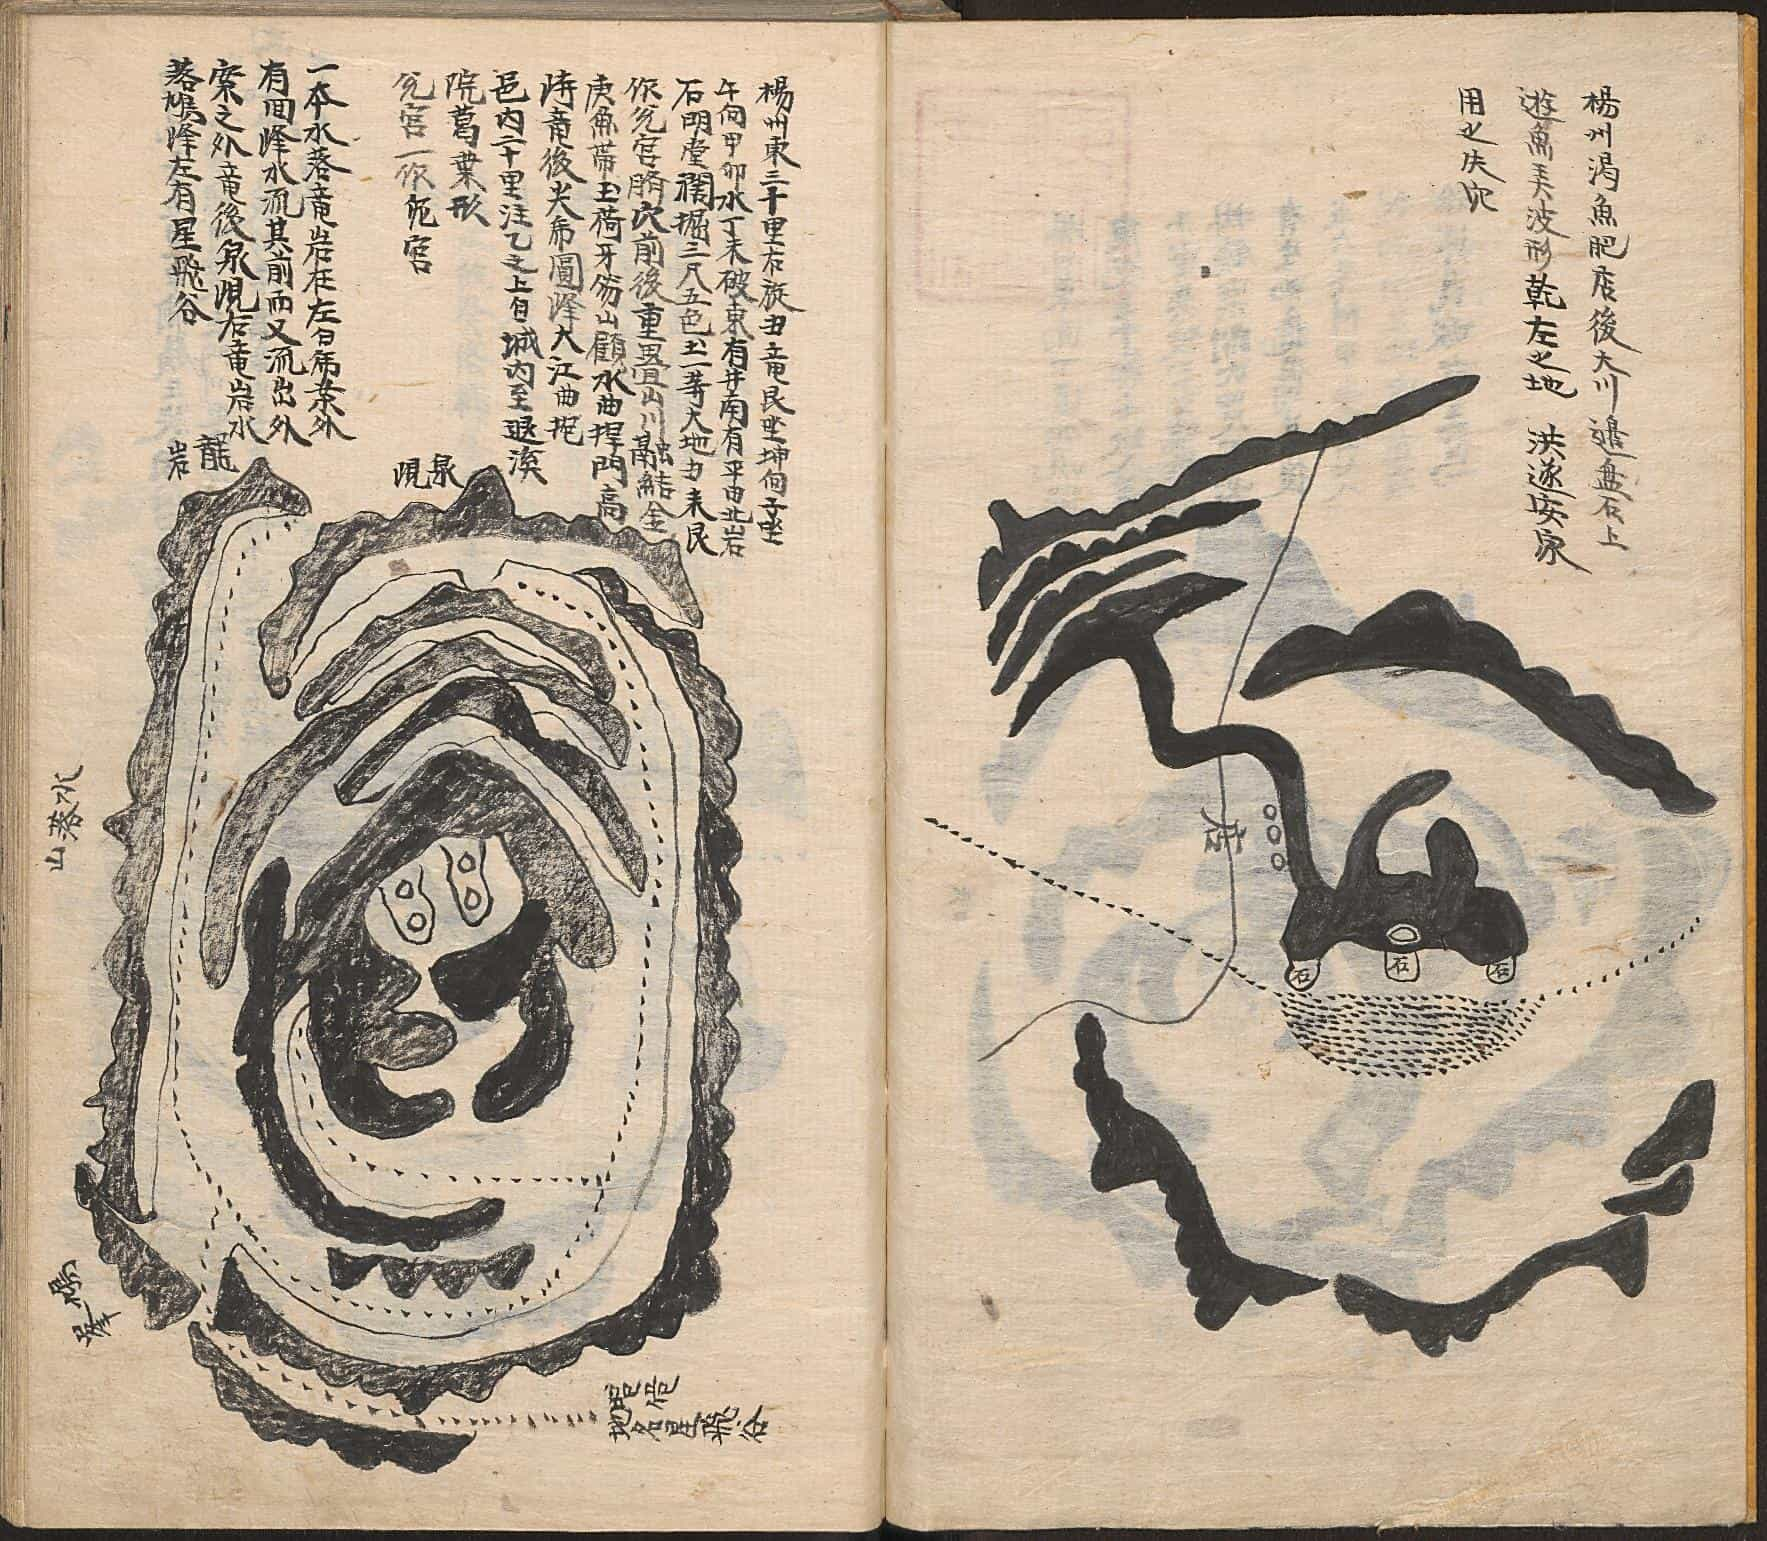 楊州渴魚肥店後大川邉盤石上
遊魚美波形乾左之地 洪遂安家
用之失穴
店
石
石
石
楊州東三十里右旋丑竜艮坐坤向子坐
午向甲卯水丁未破東有井南有平田北岩
石明堂裀掘三尺五色土一等大地力未艮
依兌宮臍穴前後重疊山川融結金
庚魚帶玉荷牙笏山顧水曲捍門高
峙竜後尖帋圓峰大江曲抱
邑內二十里注乙之上自城內至退溪
院葛葉形
兌宮一依

一本水落竜岩在左白帋案外
有回峰水流其前而又流出外
案之外竜後泉峴右竜岩水
落鳩峰左有星飛谷
龍岩
泉峴
水落山
鳩峯
地名星飛谷